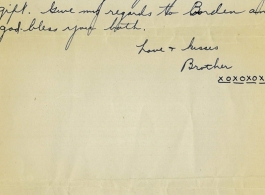 gift. Give my regards to Borden an
god bless you both.
Love & kisses
Brother
xoxoxox